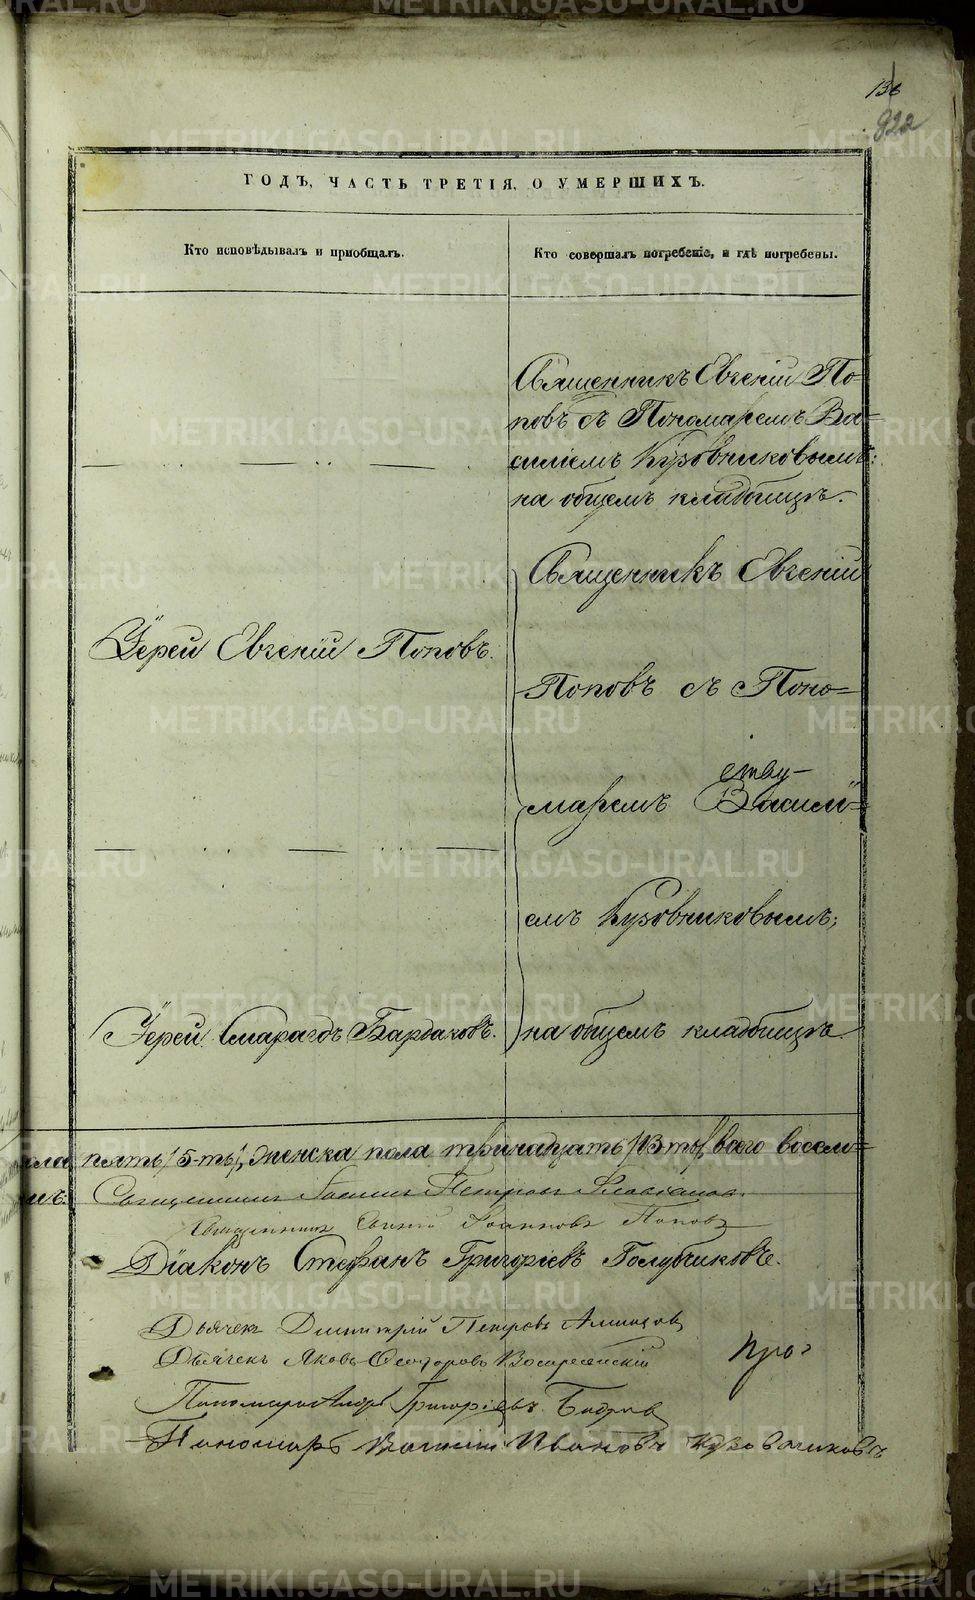 136
822
ГОДЪ, ЧАСТЬ ТРЕТІЯ, О УМЕРШИХЪ.
Кто исповѣдывалъ и пріобщалъ.
Кто совершалъ погребеніе, и гдѣ погребены.
Священникъ Евгеній По-
повъ съ Пономаремъ Ва-
силіемъ Кузовниковымъ:
на общемъ кладбищѣ.
Іерей Евгеній Поповъ.
Священникъ Евгеній
Поповъ съ Поно-
маремъ Василі-
емъ Кузовниковымъ;
на общемъ кладбищѣ.
Іерей Смарагдъ Бардаковъ.
пять /5-ть/, женска пола тринадцать /13-ть/, всего восем-
Священникъ Іоаннъ Петровъ
Священникъ Евгеній Іоанновъ Поповъ
Діаконъ Стефанъ Григоріевъ Голубчиковъ.
Дьячекъ Димитрій Петровъ
Дьячекъ Яковъ Ѳеодоровъ Воскресенскій
Пономарь Григоріевъ
Пономарь Василій Ивановъ Кузовниковъ
METRIKI.GASO-URAL.RU